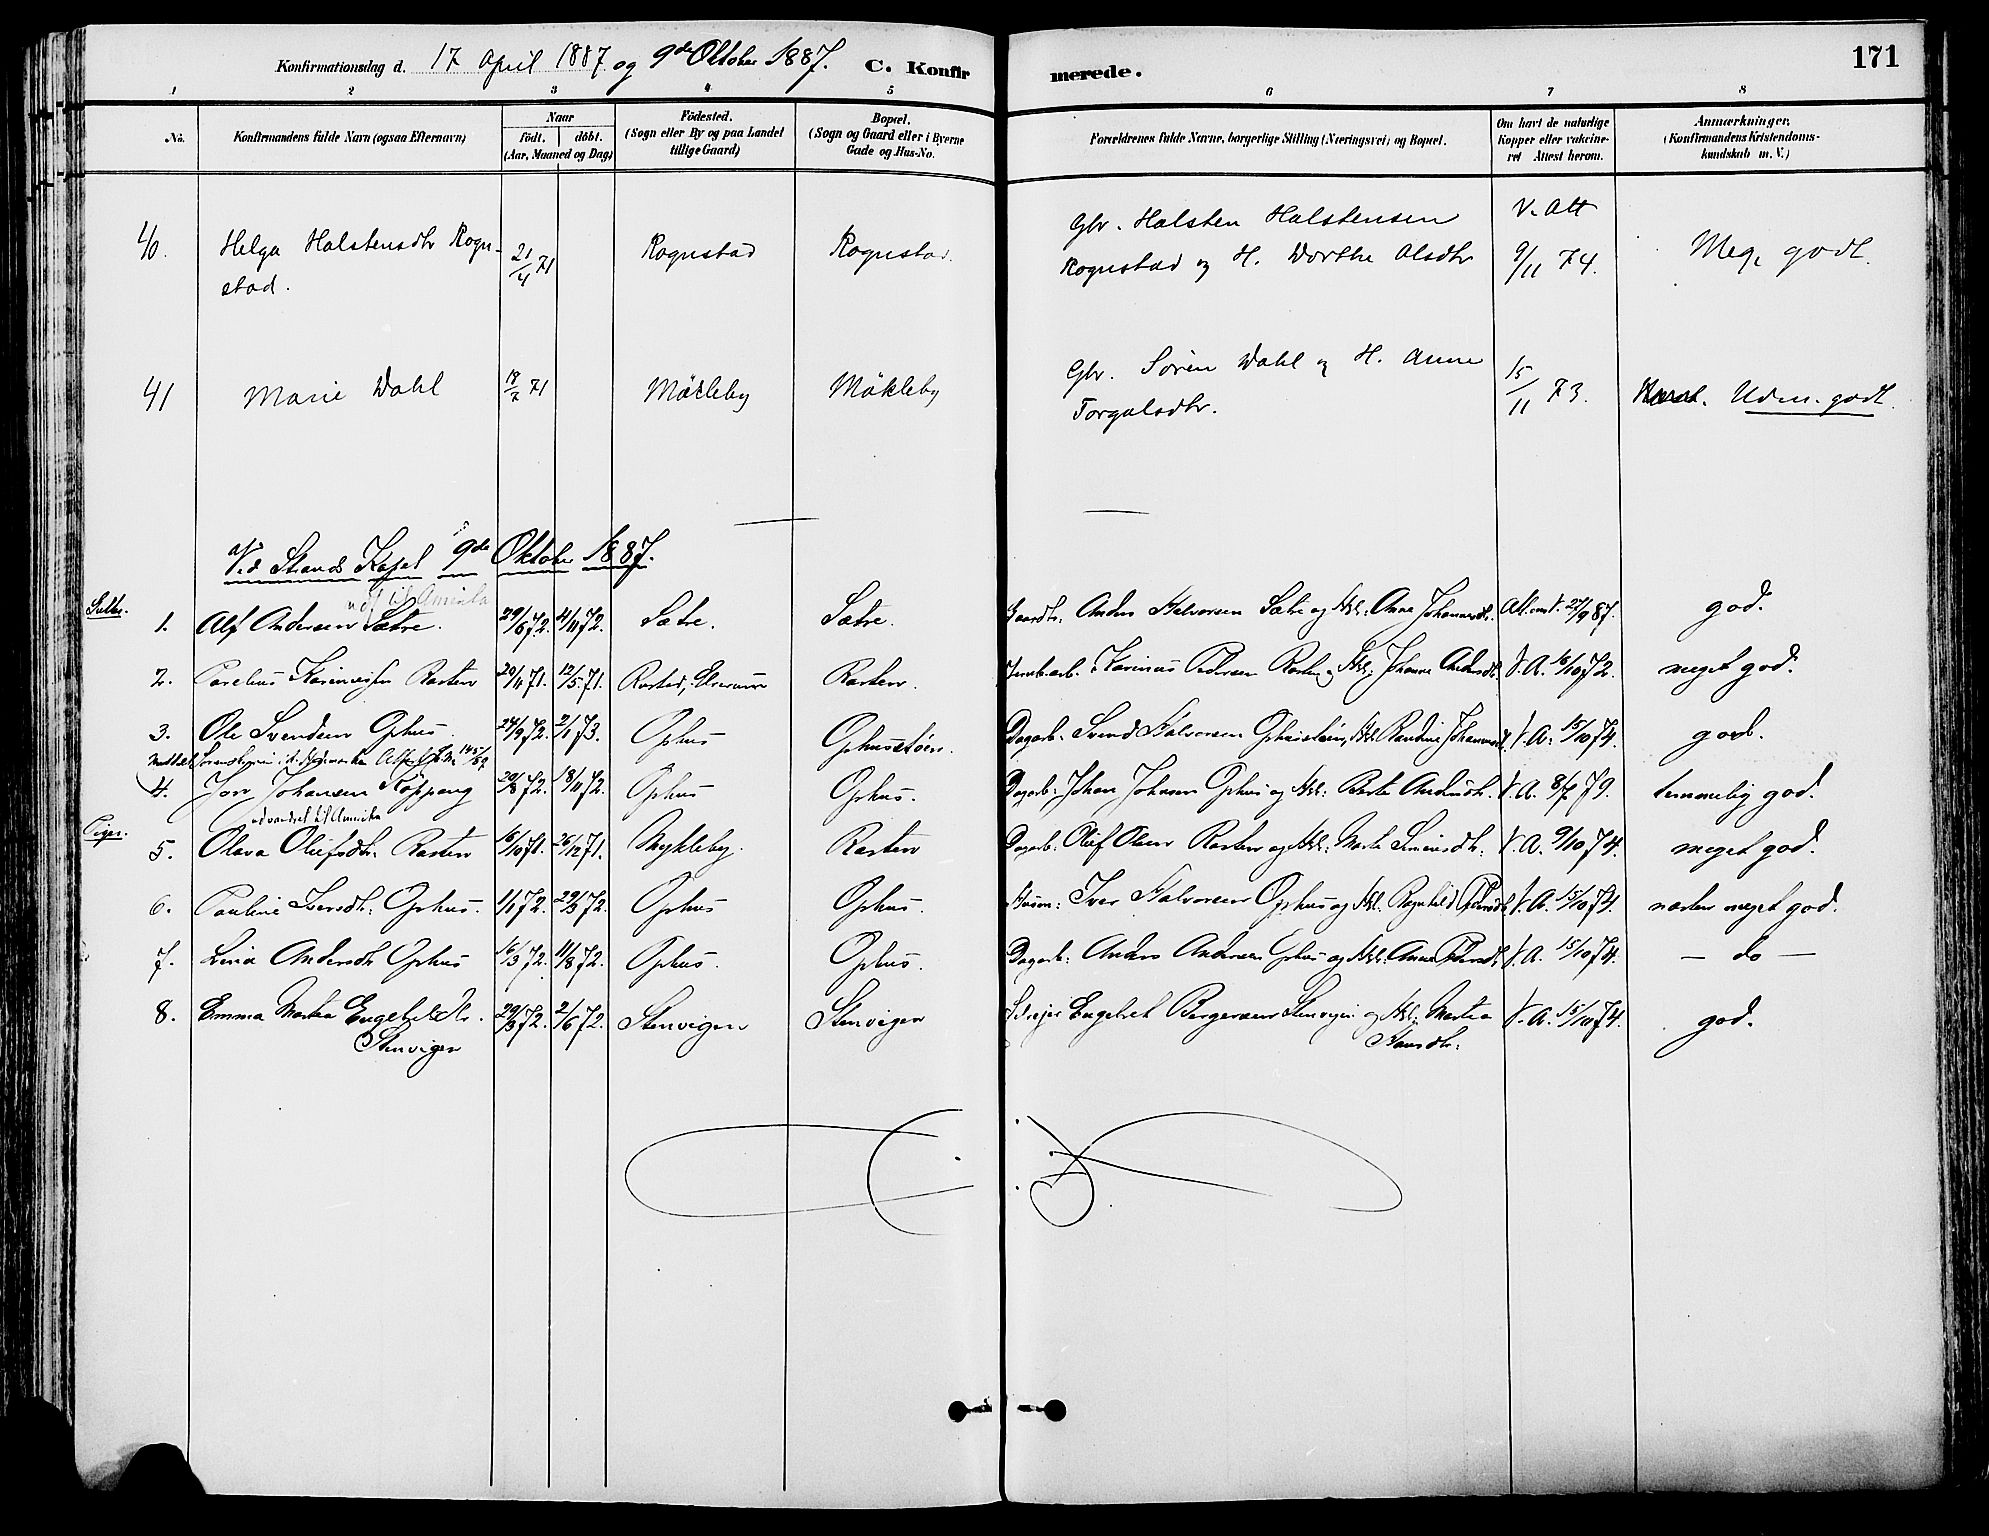 Konfirmationsdag d. 17 April 1887 og 9de Oktober 1887. C. Konfir merede. 171
1 2 3 4 5 6 7 8
No.
Konfirmandens fulde Navn (ogsaa Efternavn)
Naar
födt. döbt.
(Aar, Maaned og Dag)
Födested.
(Sogn eller By og paa Landet
tillige Gaard)
Bopæl.
(Sogn og Gaard eller i Byerne
Gade og Hus-No.
Forældrenes fulde Navne, borgerlige Stilling (Næringsvei) og Bopæl.
Om havt de naturlige
Kopper eller vakcine-
ret Attest herom.
Anmærkninger.
(Konfirmandens Kristendoms-
kundskab m. V.)
Gbr. Halsten Halstensen V. Att
40. Helga Halstensdtr Rogn- 21/4 71 Rognstad Rognstad. Rognstad og H. Dorthe Olsdtr 9/11 74. Meg. godt.
stad.
Gbr. Sören Dahl og H. Anne 15/11 73.
41 Marie Dahl 18/7 71 Mökleby Mökleby Torgalsdtr. Udm. godt.
Ved Strands Kapel 9de Oktober 1887.
1. Alf Andersen Sætre. 29/6 72. 4/11 72. Sætre. Sætre. Gaardbr. Anders Halvorsen Sætre og Hst. Anne Johannesdtr. Att. om V. 27/9 87. god.
2. Karinusen Rasten 20/4 71. 12/5 71. Rasten. Karinus Pedersen Rasten og Hst. Johanne Andersdtr. V. A. 16/10 72. meget god.
3. Ole Svendsen Ophus. 24/9 72. 2/1 73. Ophus Ophusstöen. Dagarb. Svend Halvorsen Ophusstöen, Hst. Randine Johannesdtr. V. A. 15/10 74. god.
4. Jon Johansen Koppang 20/8 72. 18/11 72. Ophus Ophus. Dagarb. Johan Johnsen Ophus og Hst. Berte Andersdtr. V. A. 8/7 79. temmelig god.
udvandret til Amrika
Piger.
5. Olava Olufsdtr. Rasten 16/10 71. 26/12 71. Mykleby. Rasten Dagarb. Oluf Olsen Rasten og Hst. Marte Simensdtr. V. A. 9/10 74. meget god.
6. Pauline Iversdtr. Ophus. 1/1 72. 29/3 72. Ophus Ophus. Husm. Iver Halvorsen Ophus og Hst. Ragnhild Pedersdtr. V. A. 15/10 74. næsten meget god.
7. Lina Andersdtr Ophus 16/3 72. 11/8 72. Ophus. Ophus. Dagarb. Anders Andersen Ophus og Hst. Anne Pedersdtr. V. A. 15/10 74. — do —
8. Emma Martea Engebretsdtr. 29/3 72. 2/6 72. Stenvigen Stenvigen Engebret Bergersen Stenvigen og Hst. Martea V. A. 15/10 74. god.
Stenvigen Hansdtr.